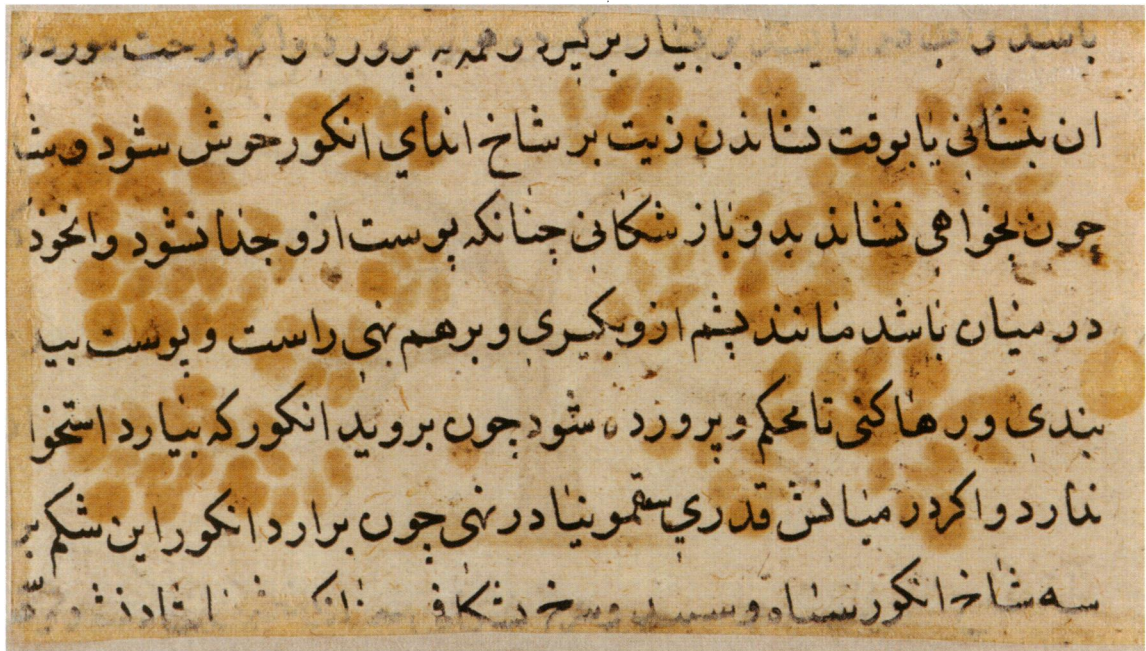 بسیار برگیرد و همه به پرورد و اگر درخت مورد
ان بنشانی یا بوقت نشاندن زیت بر شاخ اندای انکور خوش شود و
جون بخواهی نشاند بدو باز شکافی جنانکه پوست ازو جذا نشود و انخوذ
در میان باشد مانند پشم ازو بکیری و برهم نهی راست و پوست
ببندی و رها کنی تا محکم و پرورده شود جون بروید انکور که بیارد استخوا
ندارد و اکر در میانش قدری سقمونیا در نهی جون برارد انکور این شکم
سه شاخ انکور سیاه و سپید و سرخ بشکافی